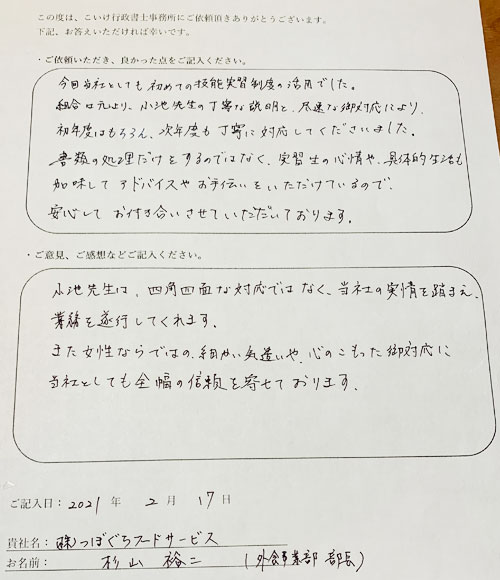 この度は、こいけ行政書士事務所にご依頼頂きありがとうございます。
下記、お答えいただければ幸いです。
・ご依頼いただき、良かった点をご記入ください。
今回当社としても初めての技能実習制度の活用でした。
組合は元より、小池先生の丁寧な説明と、迅速な御対応により、
初年度はもちろん、次年度も丁寧に対応してくださいました。
書類の処理だけをするのではなく、実習生の心情や、具体的生活も
加味してアドバイスやお手伝いをいただけているので、
安心してお付き合いさせていただいております。
・ご意見、ご感想などご記入ください。
小池先生は、四角四面な対応ではなく、当社の実情を踏まえ、
業務を遂行してくれます。
また女性ならではの、細かい気遣いや、心のこもった御対応に
当社としても全幅の信頼を寄せております。
ご記入日：2021 年 2 月 17 日
貴社名：(株)つぼぐちフードサービス
お名前：杉山 裕二 (外食事業部 部長)